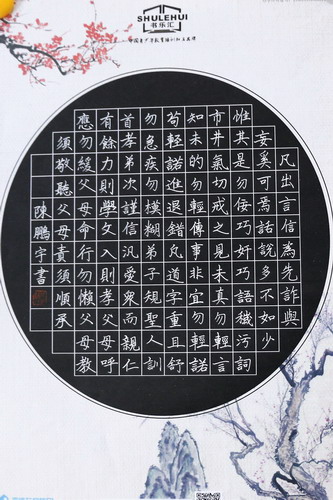 SHULEHUI
书乐汇
凡出言信為先詐與
妄奚可焉話說多不如少
惟其是勿佞巧奸巧語穢污詞
市井氣切戒之見未真勿輕言
知未的勿輕傳事非宜勿輕諾
苟輕諾進退錯凡道字重且舒
勿急疾勿模糊弟子規聖人訓
首孝弟次謹信汎愛眾而親仁
有餘力則學文入則孝父母呼
應勿緩父母命行勿懶父母教
須敬聽父母責須順承
陳鵬宇書